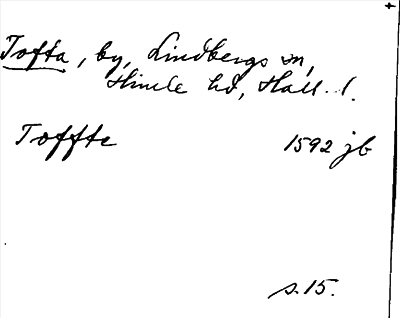 Tofta, by, Lindbergs sn,
Himle hd, Hall. l.
Toffte 1592 jb
s. 15.